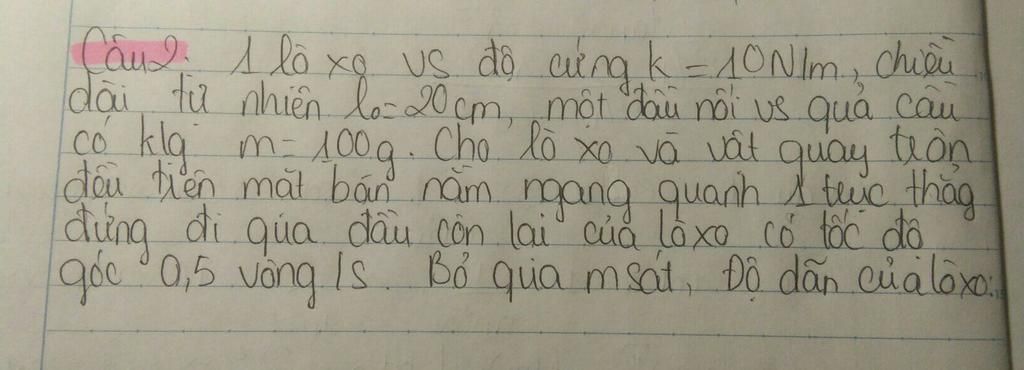 Câu2. 1 lò xo vs độ cứng k = 10N/m, chiều
dài tự nhiên l₀= 20cm, một đầu nối vs quả cầu
có klg m= 100g. Cho lò xo và vật quay tròn
đều trên mặt bàn nằm ngang quanh 1 trục thẳg
đứng đi qua đầu còn lại của lò xo có tốc độ
góc 0,5 vòng/s. Bỏ qua m sát, Độ dãn của lò xo: